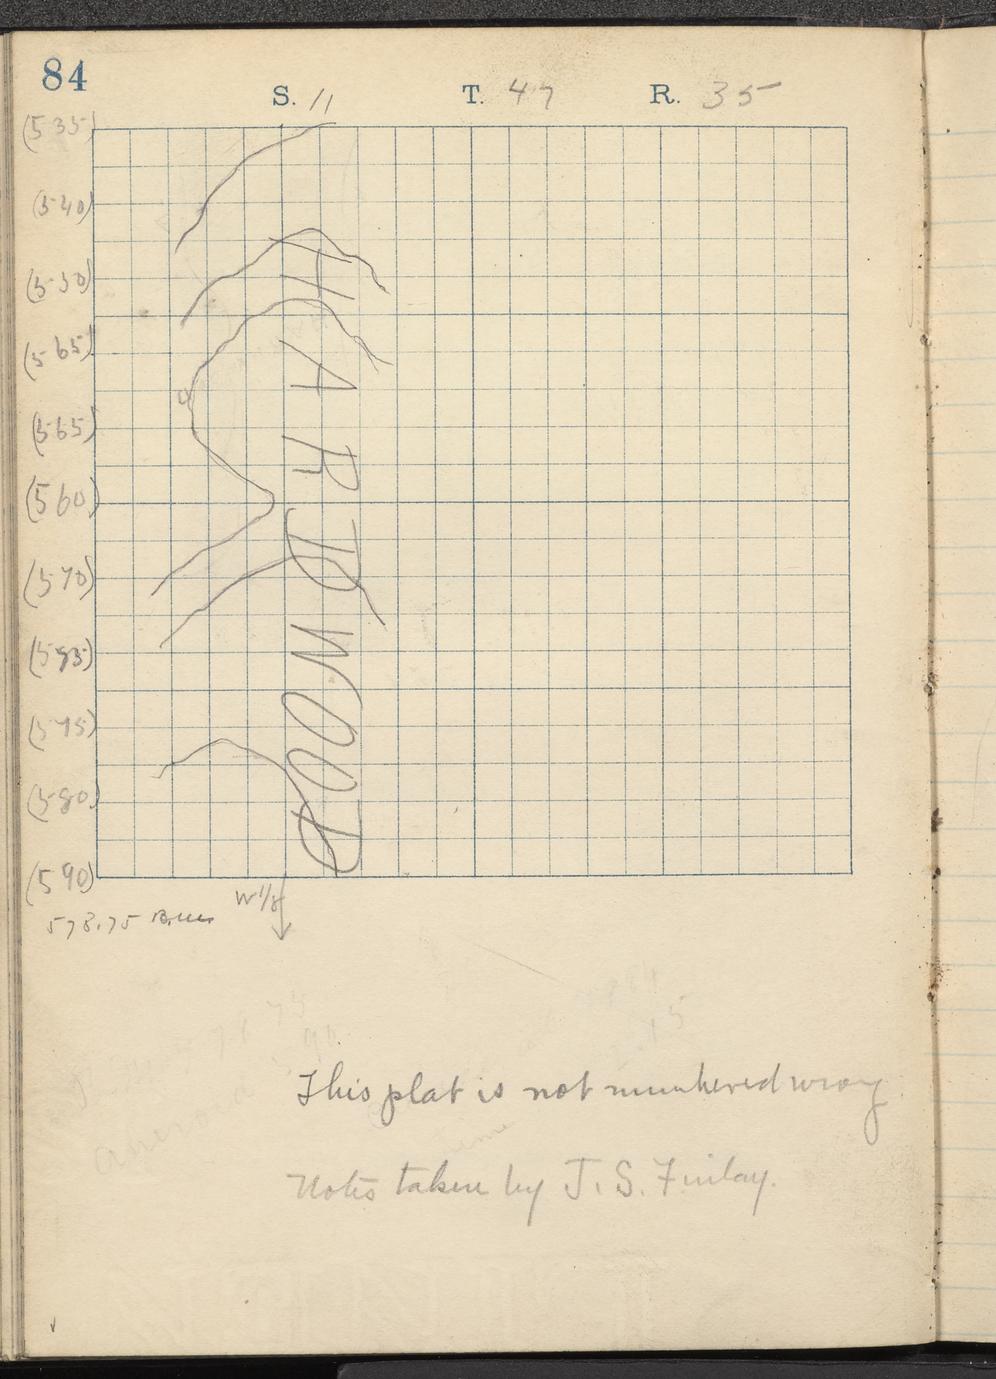 84
S. 11 T. 47 R. 35
(535)
(540)
(550)
(565)
(565)
(560)
(570)
(575)
(580)
(590)
HARDWOOD
W 1/8
578.75
This plat is not numbered wrong
Notes taken by J. S. Finlay.